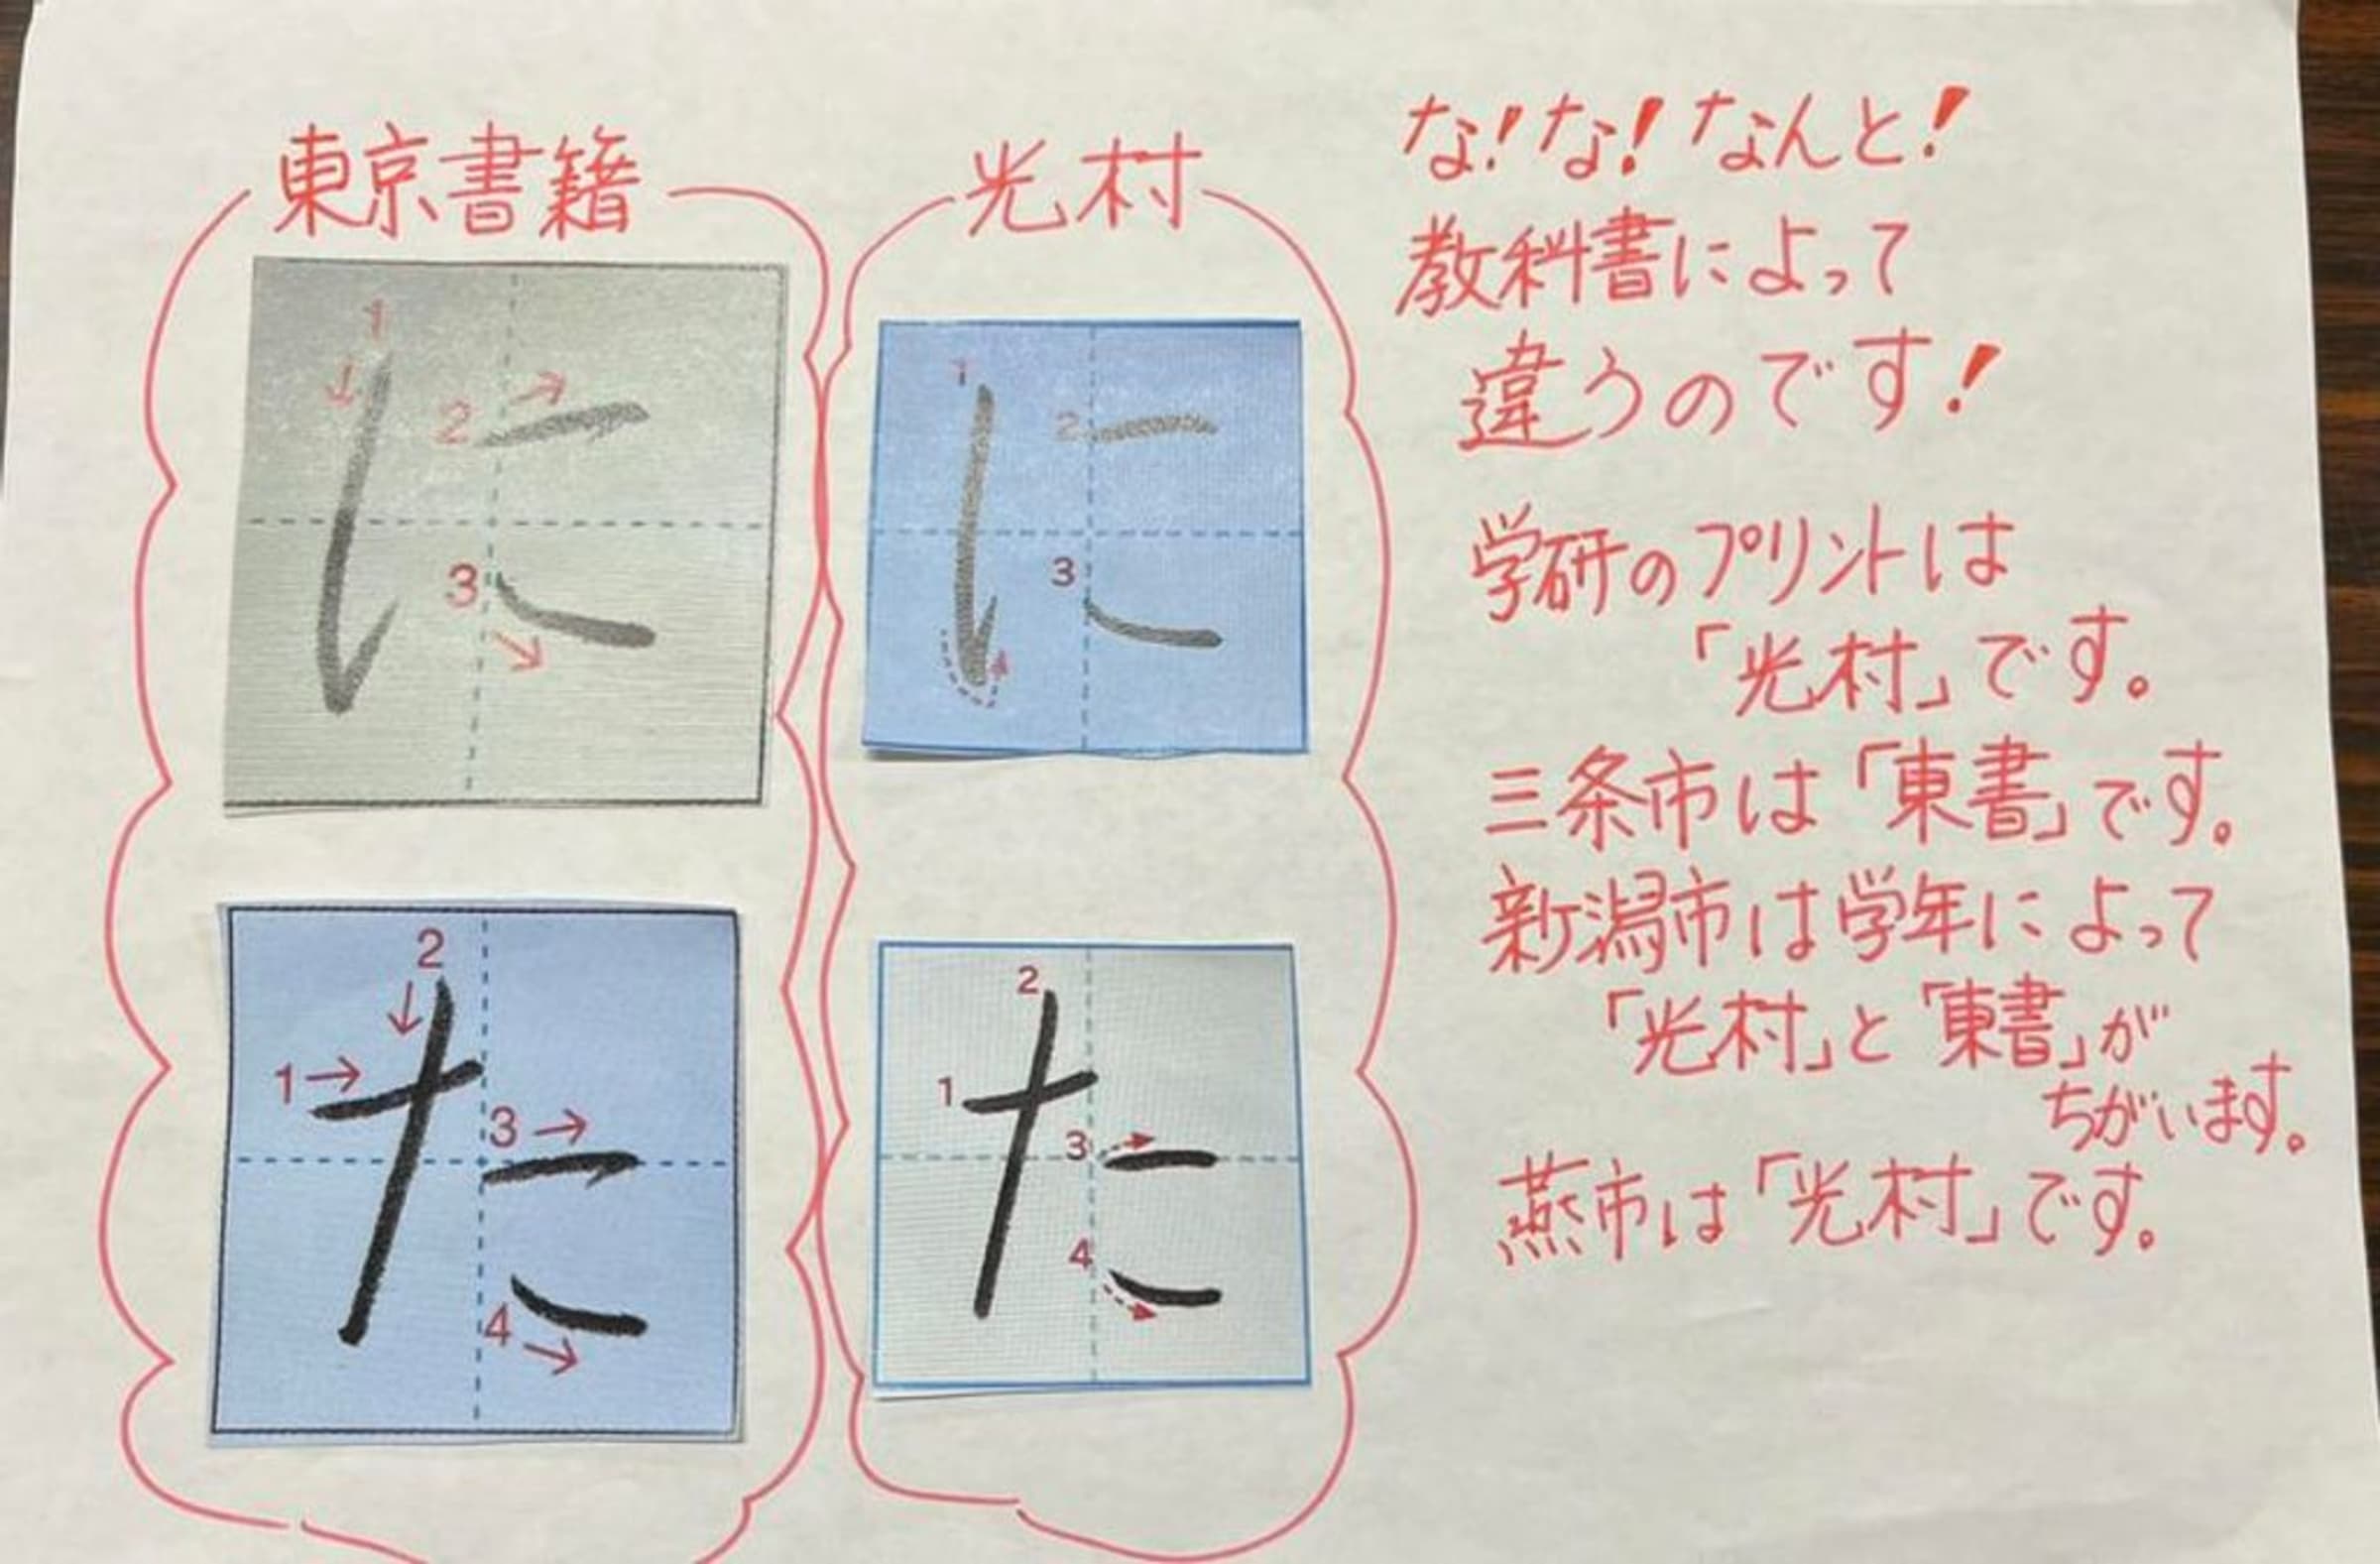 東京書籍
1
2
3
に
2
1
3
4
た
光村
1
2
3
に
2
1
3
4
た
な!な!なんと!
教科書によって
違うのです!
学研のプリントは
「光村」です。
三条市は「東書」です。
新潟市は学年によって
「光村」と「東書」が
ちがいます。
燕市は「光村」です。